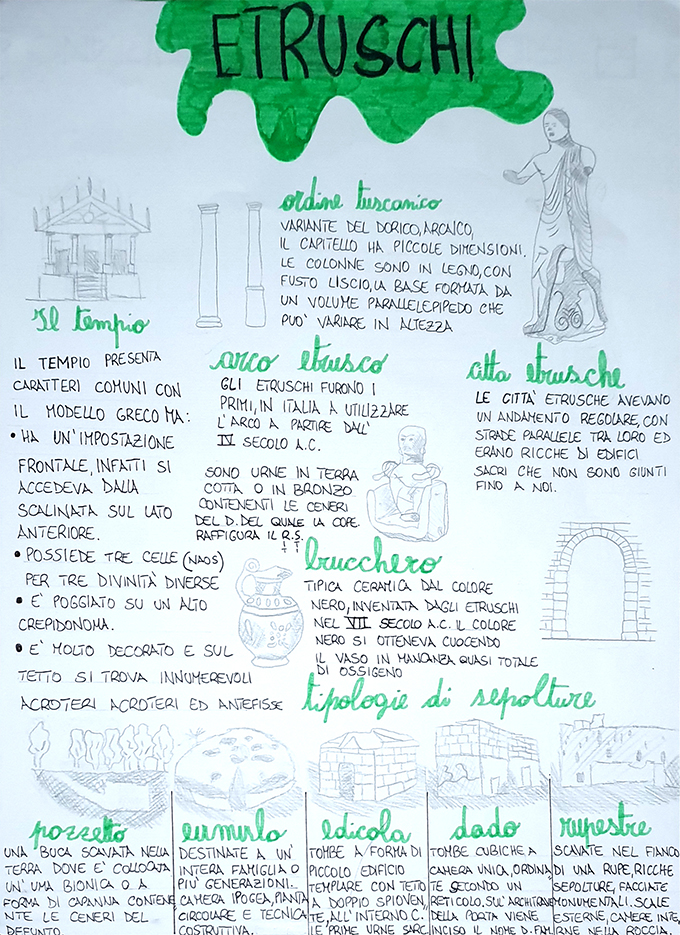 ETRUSCHI
ordine tuscanico
VARIANTE DEL DORICO, ARCAICO,
IL CAPITELLO HA PICCOLE DIMENSIONI.
LE COLONNE SONO IN LEGNO, CON
FUSTO LISCIO, LA BASE FORMATA DA
UN VOLUME PARALLELEPIPEDO CHE
PUO' VARIARE IN ALTEZZA
Il tempio
IL TEMPIO PRESENTA
CARATTERI COMUNI CON
IL MODELLO GRECO MA:
• HA UN'IMPOSTAZIONE
FRONTALE, INFATTI SI
ACCEDEVA DALLA
SCALINATA SUL LATO
ANTERIORE.
• POSSIEDE TRE CELLE (NAOS)
PER TRE DIVINITÀ DIVERSE
• E' POGGIATO SU UN ALTO
CREPIDONOMA.
• E' MOLTO DECORATO E SUL
TETTO SI TROVA INNUMEREVOLI
ACROTERI ACROTERI ED ANTEFISSE
arco etrusco
GLI ETRUSCHI FURONO I
PRIMI, IN ITALIA A UTILIZZARE
L'ARCO A PARTIRE DALL'
IV SECOLO A.C.
SONO URNE IN TERRA
COTTA O IN BRONZO
CONTENENTI LE CENERI
DEL D. DEL QUALE LA COPE.
RAFFIGURA IL R.S.
città etrusche
LE CITTA' ETRUSCHE AVEVANO
UN ANDAMENTO REGOLARE, CON
STRADE PARALLELE TRA LORO ED
ERANO RICCHE DI EDIFICI
SACRI CHE NON SONO GIUNTI
FINO A NOI.
brucchero
TIPICA CERAMICA DAL COLORE
NERO, INVENTATA DAGLI ETRUSCHI
NEL VII SECOLO A.C. IL COLORE
NERO SI OTTENEVA CUOCENDO
IL VASO IN MANCANZA QUASI TOTALE
DI OSSIGENO
tipologie di sepolture
pozzetto
UNA BUCA SCAVATA NELLA
TERRA DOVE E' COLLOCATA
UN'URNA BIONICA O A
FORMA DI CAPANNA CONTENE
NTE LE CENERI DEL
DEFUNTO.
DESTINATE A UN'
INTERA FAMIGLIA O
PIU' GENERAZIONI.
CAMERA IPOGEA, PIANTA
CIRCOLARE E TECNICA
COSTRUTTIVA.
edicola
TOMBE A FORMA DI
PICCOLO EDIFICIO
TEMPLARE CON TETTO
A DOPPIO SPIOVEN
TE, ALL'INTERNO C.
LE PRIME URNE SARC.
dado
TOMBE CUBICHE A
CAMERA UNICA, ORDINA
TE SECONDO UN
RETICOLO, SULL'ARCHITRAVE
DELLA PORTA VIENE
INCISO IL NOME D. FAM.
rupestre
SCAVATE NEL FIANCO
DI UNA RUPE, RICCHE
SEPOLTURE, FACCIATE
MONUMENTALI. SCALE
ESTERNE, CAMERE INTE,
RNE NELLA ROCCIA.